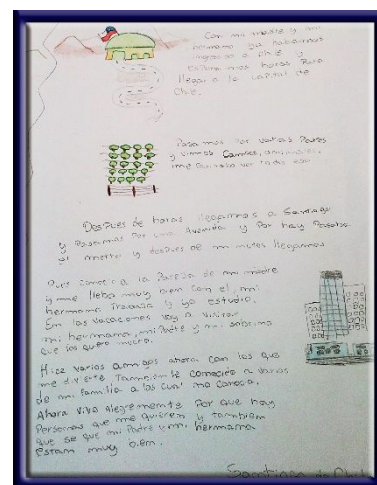 Con mi madre y mi
hermano ya habiamos
a Chile y
horas Para
llegar a la capital de
Chile.
Pasamos por varias Partes
y vimos Camiones,
por todos
Despues de horas llegamos a Santiago
y Pasamos Por una Avenida y Por hay Pasaba
el metro y despues de minutos llegamos
Pude conocer a la Pareja de mi madre
y me lleba muy bien Con el, mi
hermano Trabaja y yo estudio.
En las vacaciones voy a visitar
mi hermana, mi Padre y mi sobrina
que los quiero mucho.
Hice varios amigos ahora con los que
me divierto. Tambien he conocido a varios
de mi familia a los cual no conosia.
Ahora vivo alegremente Por que hay
Personas que me quieren y tambien
que se que mi Padre y mi hermana
estan muy bien.
Santiago de Chile